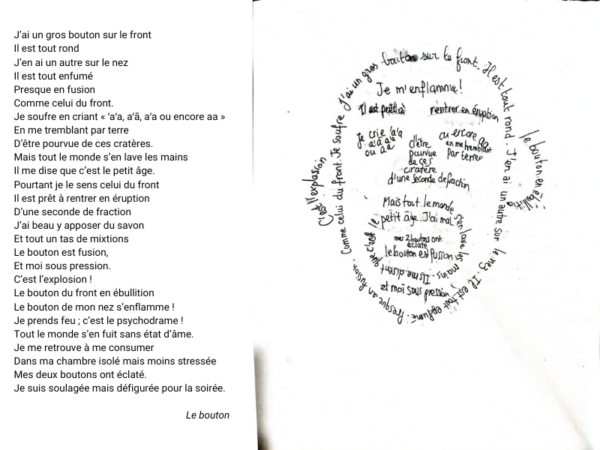 J'ai un gros bouton sur le front
Il est tout rond
J'en ai un autre sur le nez
Il est tout enfumé
Presque en fusion
Comme celui du front.
Je souffre en criant « 'a'a, a'ā, a'a ou encore aa »
En me tremblant par terre
D'être pourvue de ces cratères.
Mais tout le monde s'en lave les mains
Il me dise que c'est le petit âge.
Pourtant je le sens celui du front
Il est prêt à rentrer en éruption
D'une seconde de fraction
J'ai beau y apposer du savon
Et tout un tas de mixtions
Le bouton est fusion,
Et moi sous pression.
C'est l'explosion !
Le bouton du front en ébullition
Le bouton de mon nez s'enflamme !
Je prends feu ; c'est le psychodrame !
Tout le monde s'en fuit sans état d'âme.
Je me retrouve à me consumer
Dans ma chambre isolé mais moins stressée
Mes deux boutons ont éclaté.
Je suis soulagée mais défigurée pour la soirée.
Le bouton
J'ai un gros bouton sur le front. Il est tout rond. J'en ai un autre sur le nez. Il est tout enfumé. Presque en fusion
Comme celui du front. Je souffre
C'est l'explosion
le bouton en
Je m'enflamme!
Il est prêt à
rentrer en éruption
je crie 'a'a
a'ā a'a
ou aa
d'être
pourvue
de ces
cratère
ou encore aa
en me tremblant
par terre
d'une seconde de fraction
Mais tout le monde s'en lave les mains. Ils me disent que c'est
le petit âge. J'ai mal
mes 2 boutons ont
éclaté
le bouton est fusion
et moi sous pression